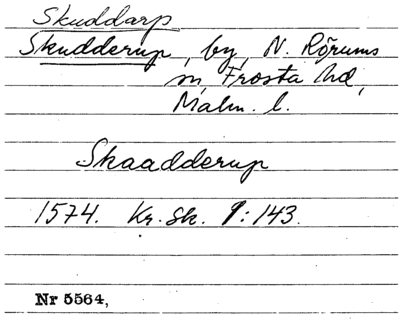 Skuddarp
Skudderup, by, N. Rörums
sn, Frosta hd,
Malm. l.
Skaadderup
1574. Kr. Sk. 1:143.
Nr 5564,